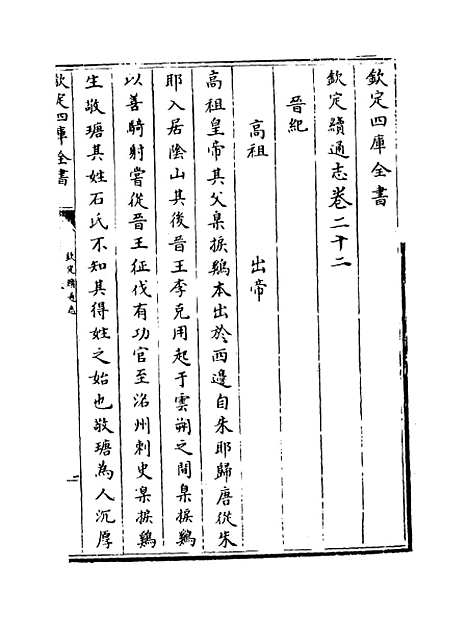 欽定四庫全書
欽定續通志卷二十二
晉紀
高祖　　出帝
高祖皇帝其父臬捩鷄本出於西邊自朱耶歸唐從朱
耶入居陰山其後晉王李克用起于雲朔之間臬捩鷄
以善騎射嘗從晉王征伐有功官至洺州刺史臬捩鷄
生敬瑭其姓石氏不知其得姓之始也敬瑭為人沉厚
欽定四庫全書
欽定續通志